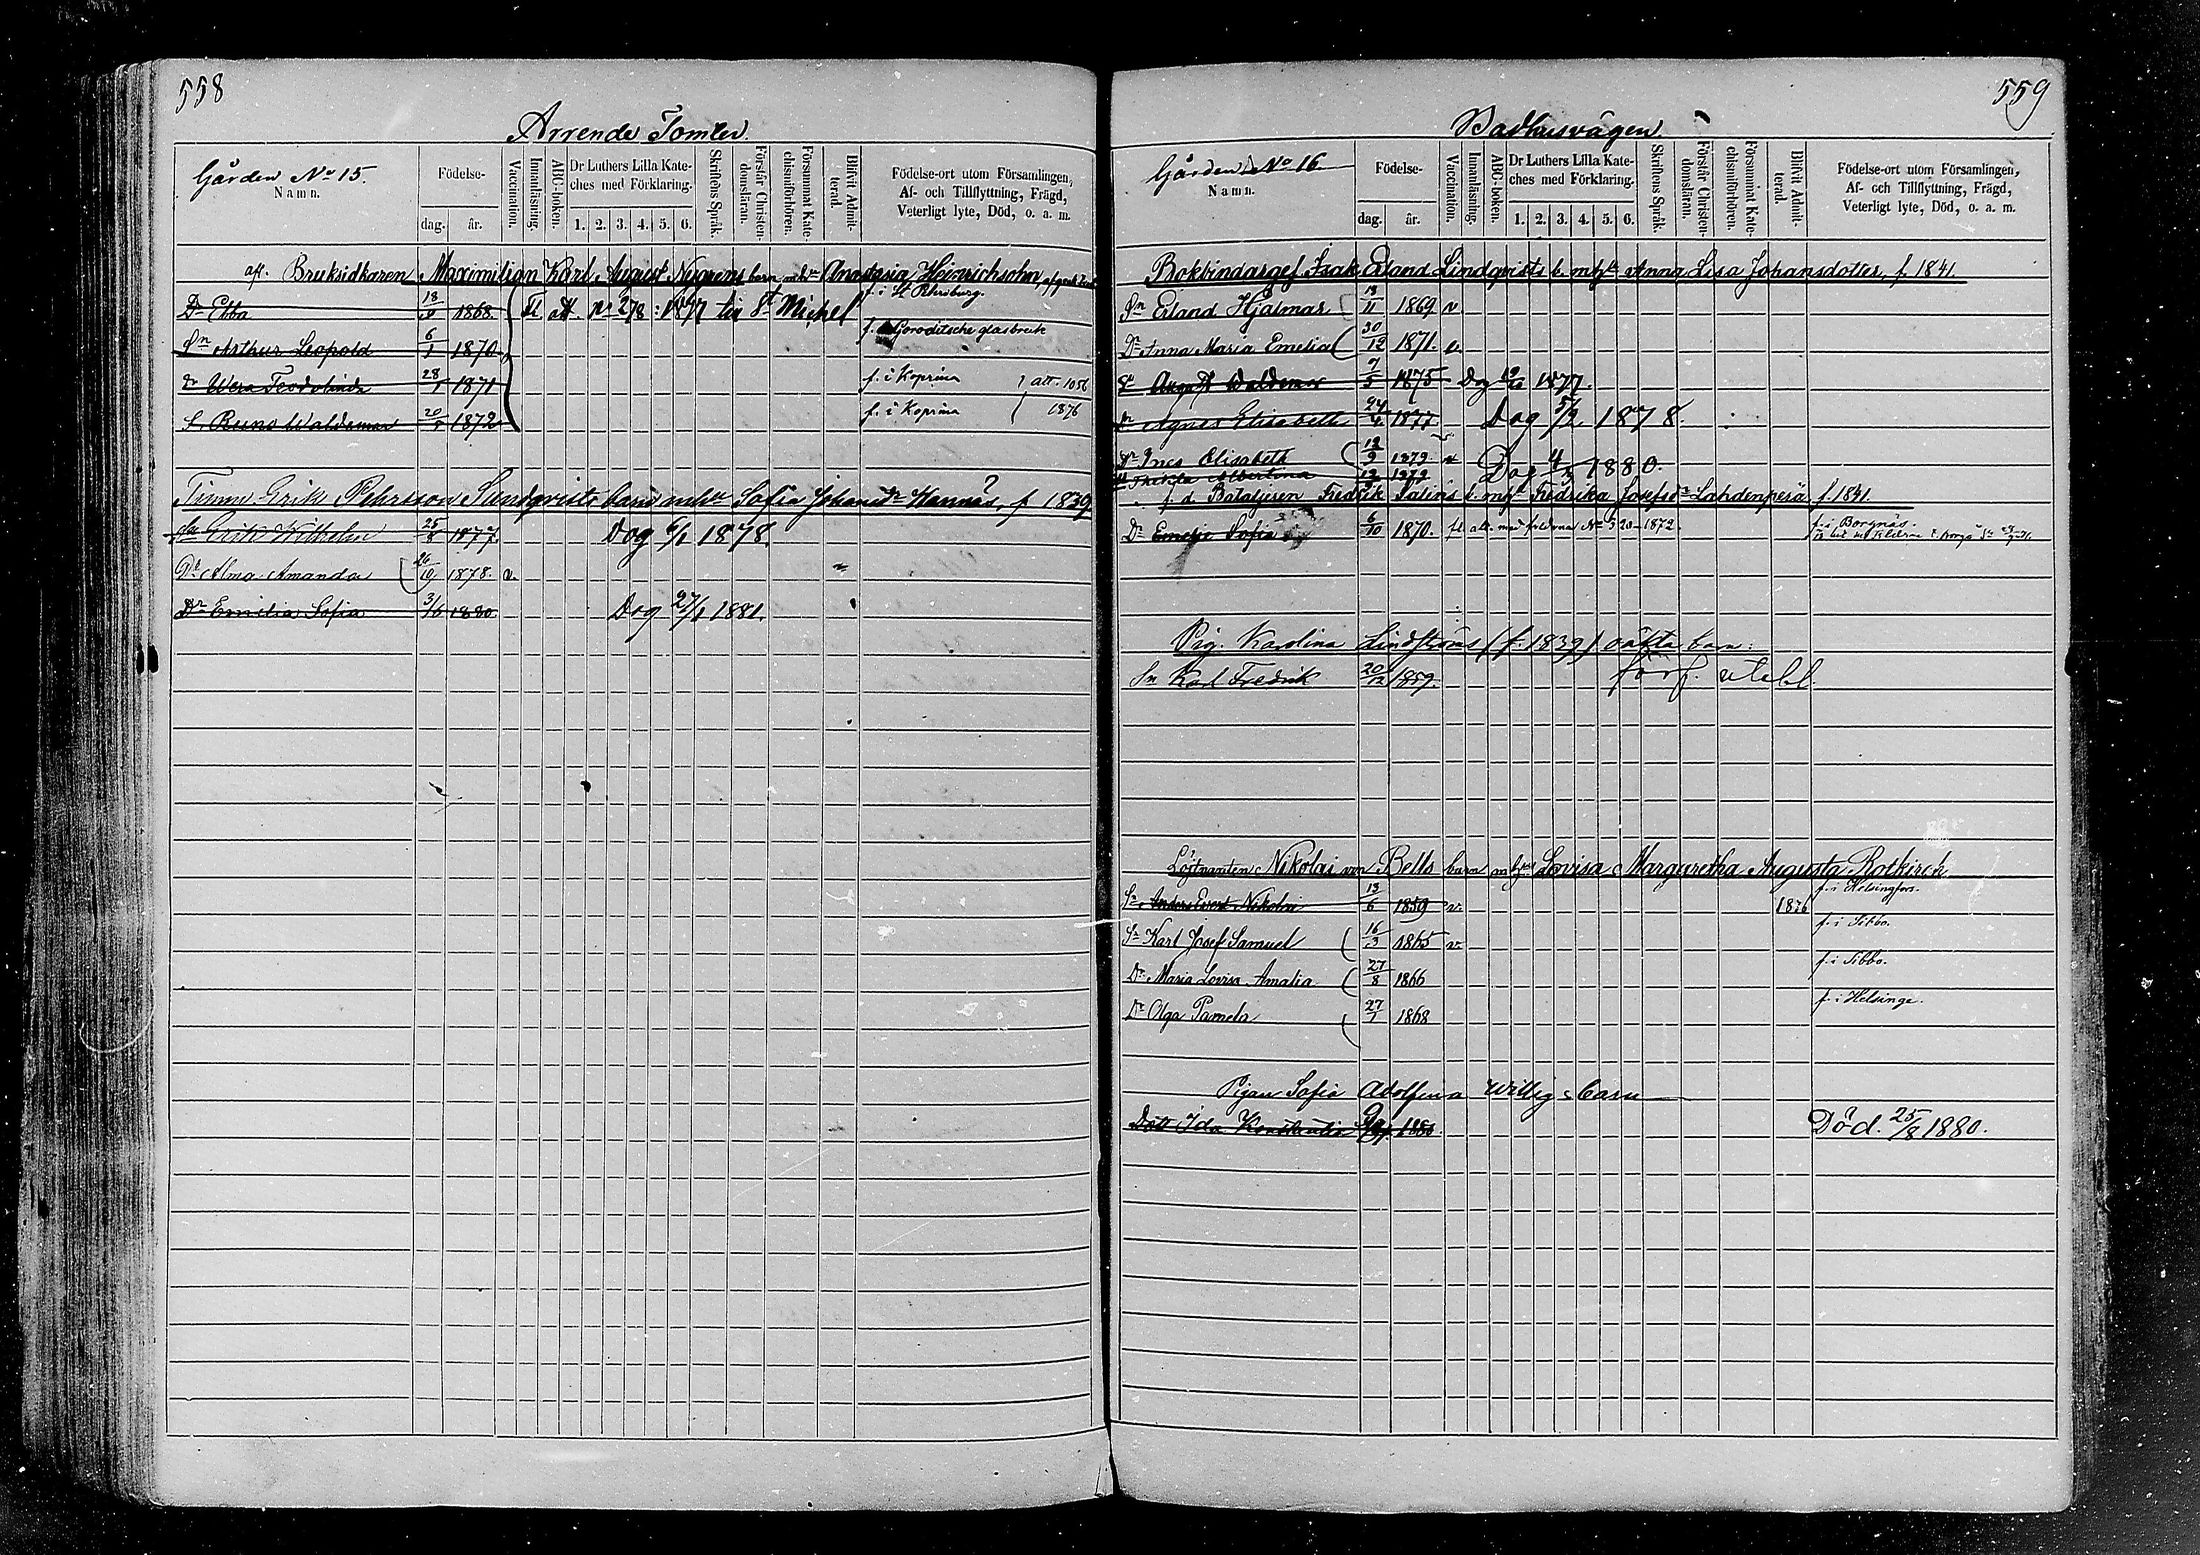 558
Arrende Tomter.
Gården No 15.
Namn.
Födelse-
dag. år.
Vaccination.
Innanläsning.
ABC-boken.
Dr Luthers Lilla Kate-
ches med Förklaring.
1. 2. 3. 4. 5. 6.
Skriftens Språk.
Förstår Christen-
domsläran.
Försummat Kate-
chismiförhören.
Blifvit Admit-
terad.
Födelse-ort utom Församlingen,
Af- och Tillflyttning, Frägd,
Veterligt lyte, Död, o. a. m.
afl. Bruksidkaren Maximilian Karl August Nygrens barn mhu Anastasia Heinrichsohn,
Dr Ebba 18/9 1868. fl att. No 278: 1877 till St Michel f. i St Petersburg.
Sn Arthur Leopold 6/1 1870 f. Goroditsche glasbruk
Dr Wera Teodolinda 28/1 1871 f. i Koprina att. 1056
S. Bruno Waldemar 20/5 1872 f. i Koprina 1876
Timm. Erik Pehrsson Sundqvists barn mhu Sofia Johansdr Hannäs, f 1839
Sn Erik Wilhelm 25/8 1877. Dog 6/1 1878.
Dr Alma Amanda 26/10 1878. v.
Dr Emilia Sofia 3/6 1880 Dog 27/1 1881.
559
Badhusvägen.
Gården No 16.
Namn.
Födelse-
dag. år.
Vaccination.
Innanläsning.
ABC-boken.
Dr Luthers Lilla Kate-
ches med Förklaring.
1. 2. 3. 4. 5. 6.
Skriftens Språk.
Förstår Christen-
domsläran.
Försummat Kate-
chismiförhören.
Blifvit Admit-
terad.
Födelse-ort utom Församlingen,
Af- och Tillflyttning, Frägd,
Veterligt lyte, Död, o. a. m.
Bokbindargef. Isak Erland Lindqvists b. mhu Anna Lisa Johansdotter, f. 1841.
Sn Erland Hjalmar 13/11 1869 v
Dr Anna Maria Emelia 30/12 1871. v.
Sn August Waldemar 7/5 1875 Dog 1877.
Dr Agnes Elisabeth 24/4 1877. Dog 5/2 1878.
Dr Ines Elisabeth 12/9 1879. v
Dr Thekla Albertina 1879 Dog 1880.
f. d. Bataljisen Fredrik Salins b. mhu Fredrika Josefsdr Lahdenperä, f. 1841.
Dr Emelie Sofia 6/10 1870. fl. att. med föräldrarna No 320-1872. f. i Borgnäs.
Pig. Karolina Lindströms (f. 1839) oäkta barn:
Sn Karl Fredrik 20/12 1859. förf. utebl.
Löjtnanten Nikolai von Bells barn mhu Lovisa Margaretha Augusta Rotkirch
Sn Anders Evert Nikolai 13/6 1859 v. 1876 f. i Helsingfors.
Sn Karl Josef Samuel 16/3 1865 v. f. i Sibbo.
Dr Maria Lovisa Amalia 27/8 1866 f. i Sibbo.
Dr Olga Pamela 27/1 1868 f. i Helsinge.
Pigan Sofia Adolfina Willigs barn
Dott Ida Konstantia 1880. Död. 25/8 1880.